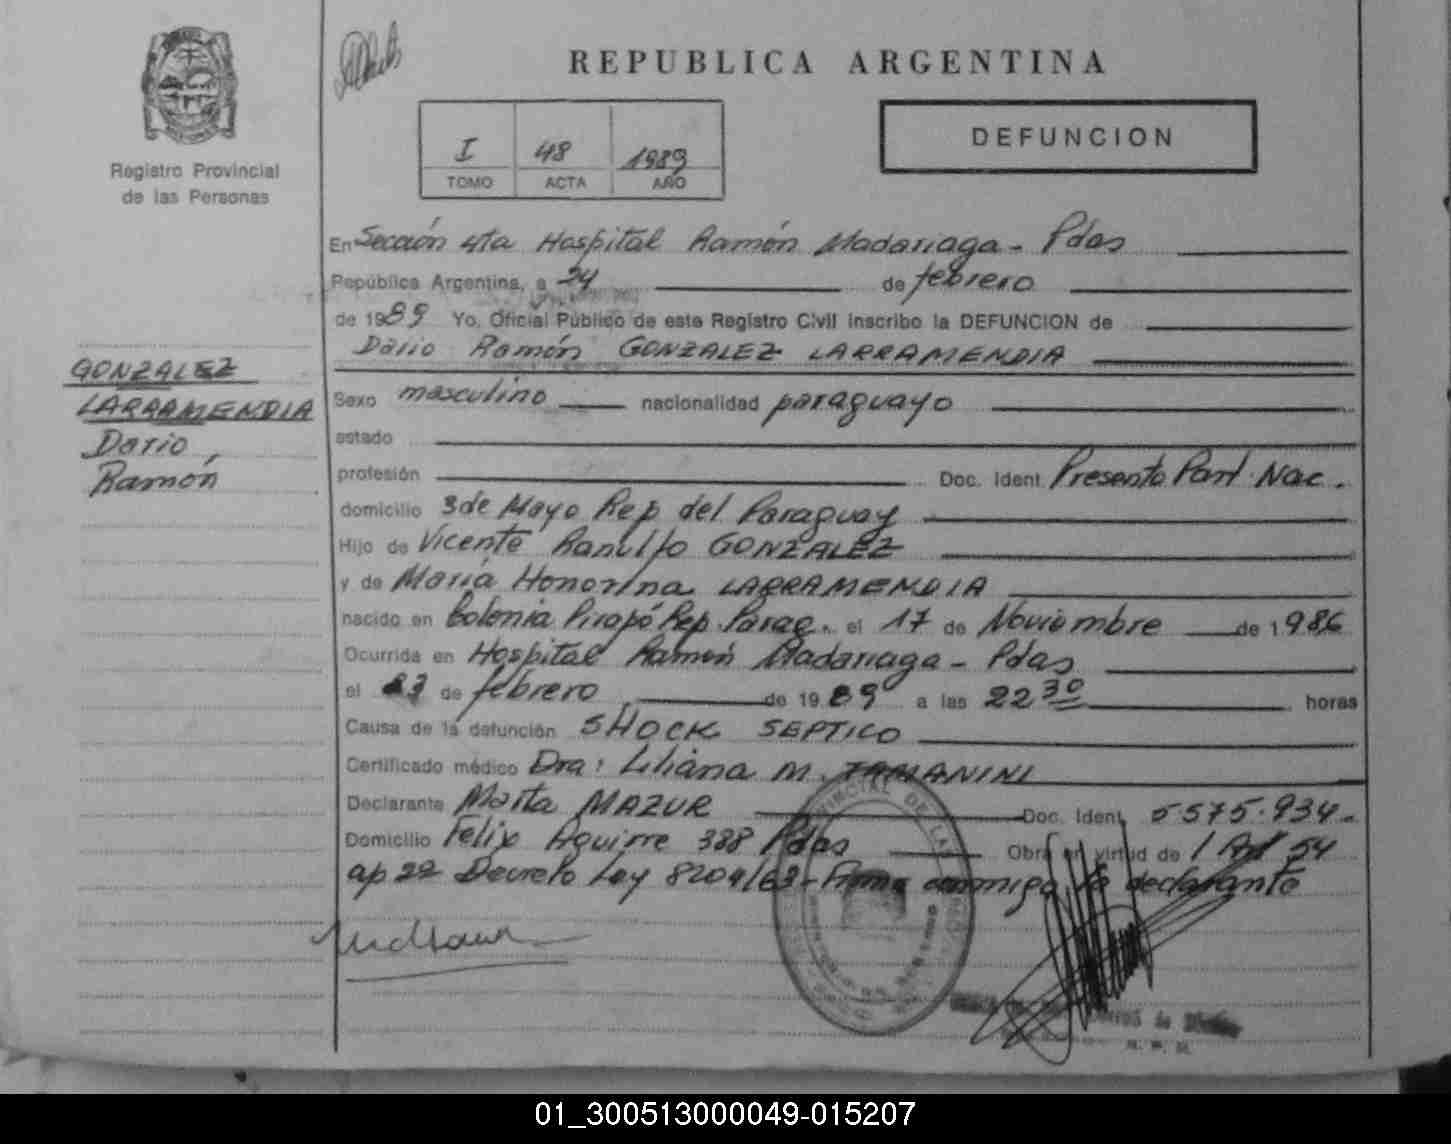 REPUBLICA ARGENTINA
Registro Provincial
de las Personas
I 48 1989
TOMO ACTA AÑO
DEFUNCION
GONZALEZ
LARRAMENDIA
Dario,
Ramón
En Sección 4ta Hospital Ramón Madariaga - Pdas
República Argentina, a 24 de febrero
de 1989 Yo, Oficial Público de este Registro Civil inscribo la DEFUNCION de
Dario Ramón GONZALEZ LARRAMENDIA
Sexo masculino nacionalidad paraguayo
estado
profesión Doc. Ident. Presento Part. Nac.
domicilio 3 de Mayo Rep del Paraguay
Hijo de Vicente Ranulfo GONZALEZ
y de María Honorina LARRAMENDIA
nacido en Colonia Pirapó Rep. Parag. el 17 de Noviembre de 1986
Ocurrida en Hospital Ramón Madariaga - Pdas
el 23 de febrero de 1989 a las 22 30 horas
Causa de la defunción SHOCK SEPTICO
Certificado médico Dra: Liliana M. TAMANINI
Declarante Marta MAZUR Doc. Ident. 5.575.934.
Domicilio Felix Aguirre 388 Pdas Obra en virtud de 1 Art 54
ap 2º Decreto Ley 8204/63 - Firma conmigo la declarante
01_300513000049-015207